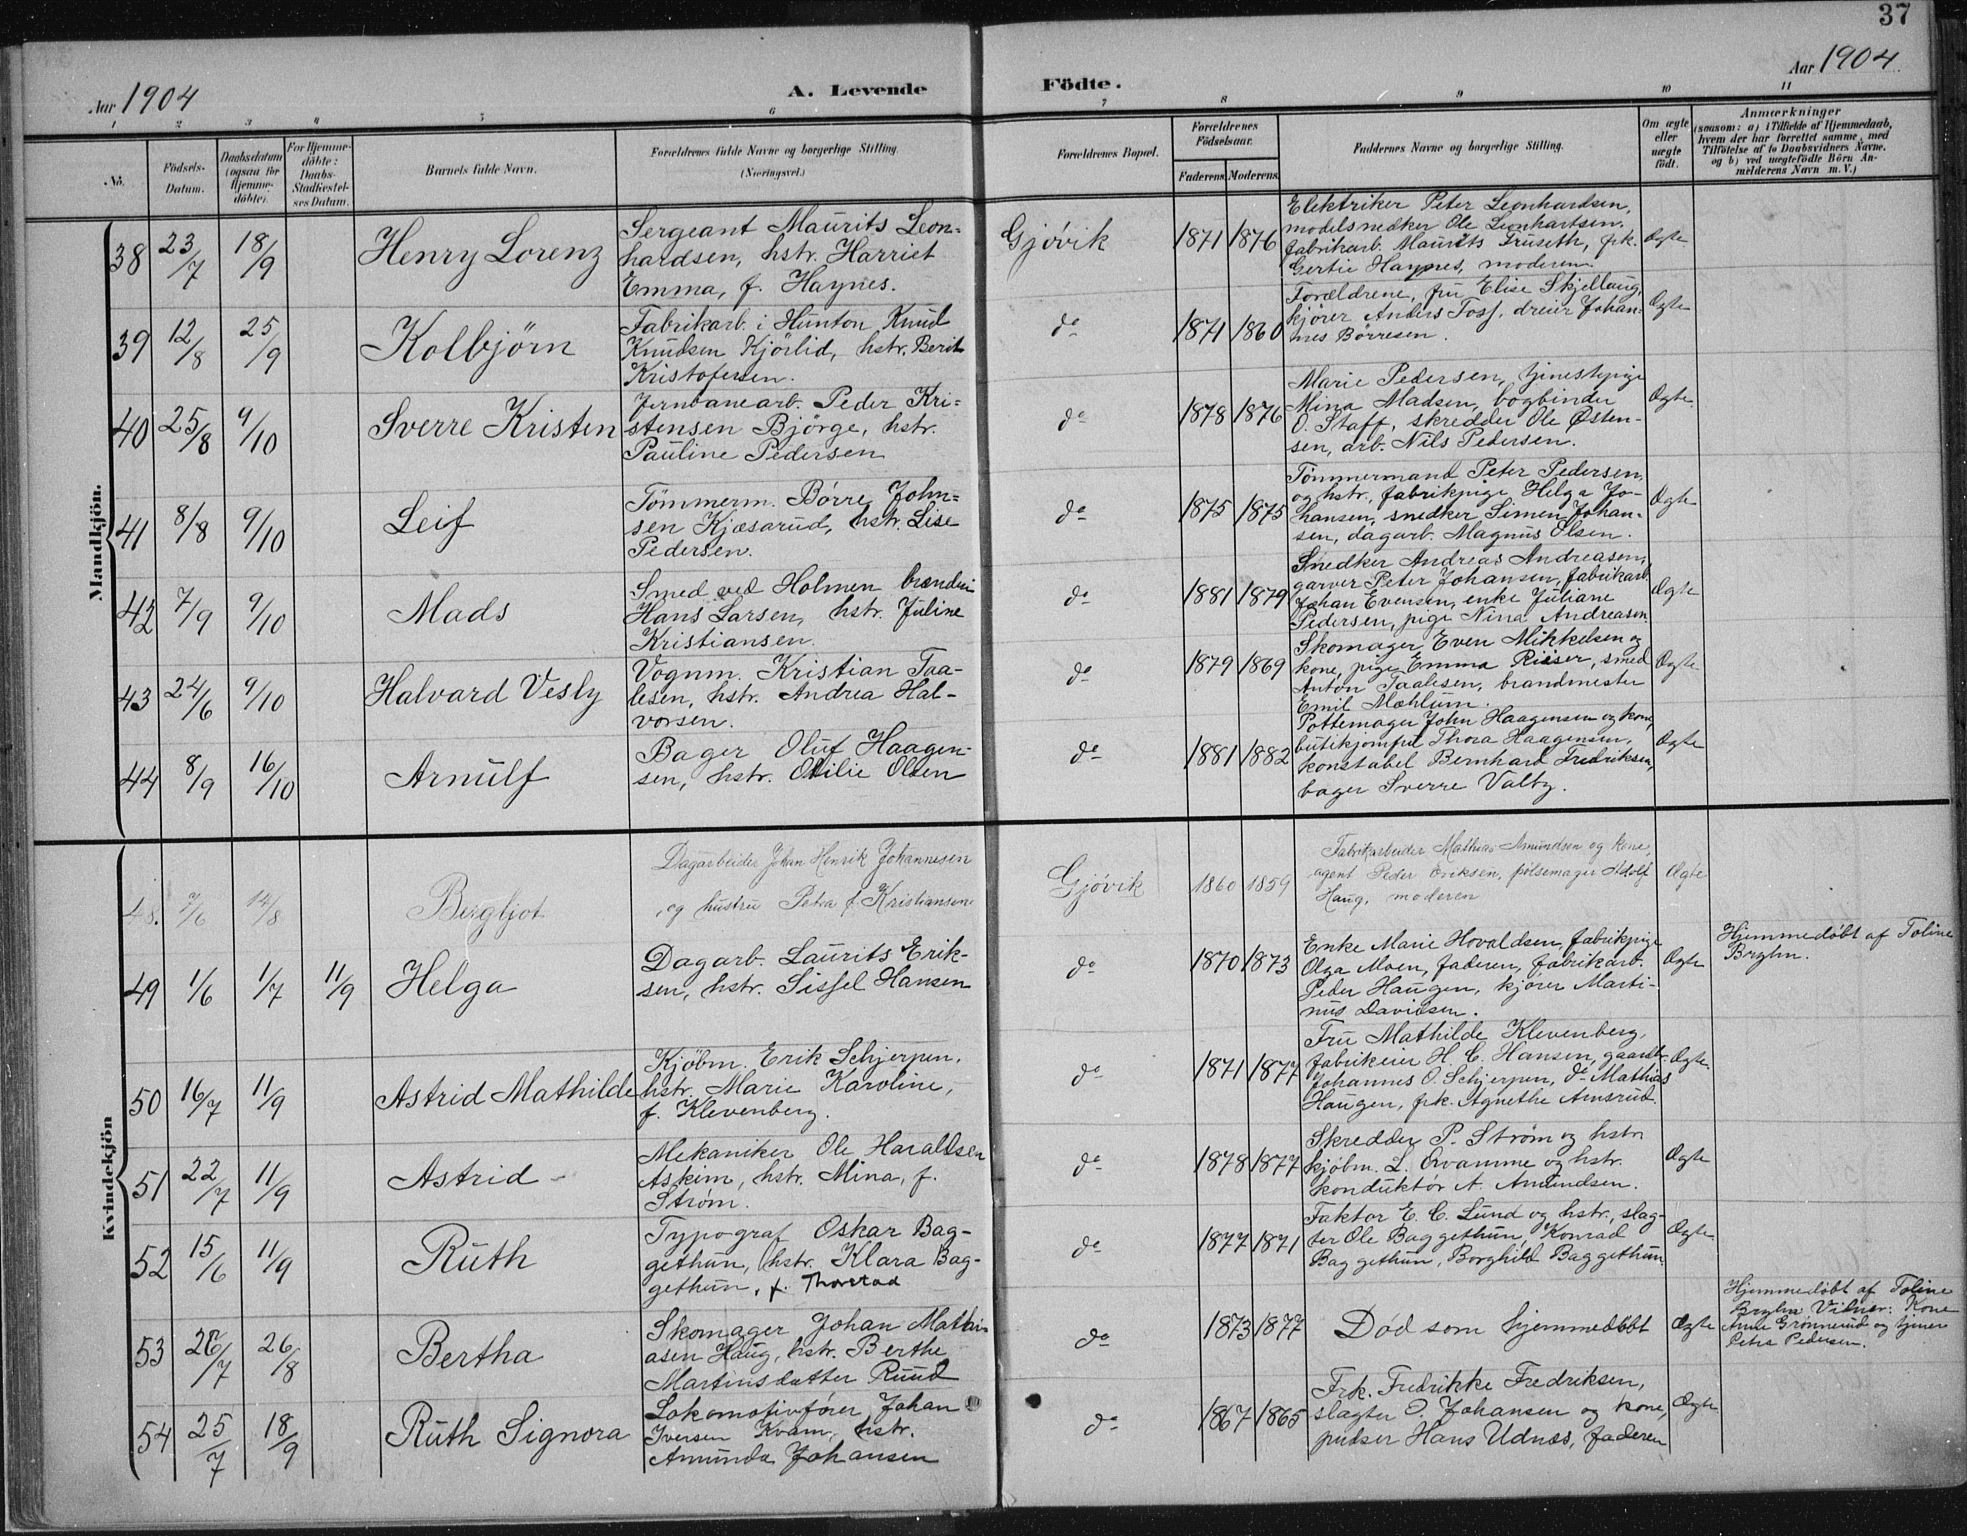 37
Aar 1904
A. Levende
Födte.
Aar 1904
1 2 3 4 5 6 7 8 9 10 11
No.
Födsels-
Datum.
Daabsdatum
(ogsaa for
Hjemme-
döbte).
For Hjemme-
döbte:
Daabs-
Stadfæstel-
ses Datum.
Barnets fulde Navn.
Forældrenes fulde Navne og borgerlige Stilling.
(Næringsvei.)
Forældrenes Bopæl.
Forældrenes
Födselsaar.
Faderens. Moderens.
Faddernes Navne og borgerlige Stilling.
Om ægte
eller
uægte
födt.
Anmærkninger
(saasom: a) i Tilfælde af Hjemmedaab,
hvem der har forrettet samme, med
Tilföielse af to Daabsvidners Navne.
og b) ved uægtefödte Börn An-
melderens Navn m. V.)
Mandkjön.
38 23/7 18/9 Henry Lorenz
Sergeant Maurits Leon-
hardsen, hstr. Harriet
Emma, f. Haynes.
Gjøvik 1871 1876
Elektriker Peter Leonhardsen,
modelsnedker Ole Leonhartsen,
fabrikarb. Maurits Fruseth, frk.
Gertie Haynes, moderen
Ægte
39 12/8 25/9 Kolbjörn
Fabrikarb. i Hunton Knud
Knudsen Kjörlid, hstr. Berit
Kristofersen.
do 1871 1860
Forældrene, fru Elise Skjellaug,
kjörer Anders Foss, dreier Johan-
nes Börresen.
Ægte
40 25/8 9/10 Sverre Kristen
Jernbanearb. Peder Kri-
stensen Björge, hstr.
Pauline Pedersen
do 1878 1876
Marie Pedersen, tjenestepige
Mina Madsen, bogbinder
O. Staff, skredder Ole Østen-
sen, arb. Nils Pedersen.
Ægte
41 8/8 9/10 Leif
Tömmerm. Börre John-
sen Kjæsarud, hstr. Lise
Pedersen.
do 1875 1875
Tömmermand Peter Pedersen
og hstr, fabrikpige Helga Jo-
hansen, snedker Simen Johan-
sen, dagarb. Magnus Olsen.
Ægte
42 7/9 9/10 Mads
Smed ved Holmen brænderi
Hans Larsen, hstr. Juline
Kristiansen.
do 1881 1879
Snedker Andreas Andreasen,
garver Peter Johansen, fabrikarb.
Johan Evensen, enke Juliane
Pedersen, pige Nina Andreasen
Ægte
43 24/6 9/10 Halvard Vesly
Vognm. Kristian Taa-
lesen, hstr. Andrea Hal-
vorsen.
do 1879 1869
Skomager Even Mikkelsen og
kone, pige Emma Riiser, smed
Anton Taalesen, brandmester
Emil Mæhlum.
Ægte
44 8/9 16/10 Arnulf
Bager Oluf Haagen-
sen, hstr. Otilie Olsen
do 1881 1882
Pottemager John Haagensen og kone,
butikjomfru Thora Haagensen,
konstabel Bernhard Fredriksen,
bager Sverre Valby.
Ægte
Kvindekjön
48. 7/6 14/8 Bergljot
Dagarbeider Johan Henrik Johannesen
og hustru Petra f. Kristiansen
Gjøvik 1860 1859
Fabrikarbeider Mathias Amundsen og kone,
agent Peder Eriksen, pølsemager Adolf
Haug, moderen
Ægte
49 1/6 1/7 11/9 Helga
Dagarb. Laurits Erik-
sen, hstr. Sissel Hansen
do 1870 1873
Enke Marie Hovaldsen, fabrikpige
Olga Moen, faderen, fabrikarb.
Peder Haugen, kjører Marti-
nus Davidsen.
Ægte
Hjemmedøbt af Toline
Bryhn.
50 16/7 11/9 Astrid Mathilde
Kjöbm. Erik Schjerpen,
hstr. Marie Karoline,
f. Klevenberg.
do 1871 1877
Fru Mathilde Klevenberg,
fabrikeier H. C. Hansen, gaardbr.
Johannes O. Schjerpen, do Mathias
Haugen, frk. Agnethe Amsrud.
Ægte
51 22/7 11/9 Astrid
Mekaniker Ole Haraldsen
Askim, hstr. Mina, f.
Strøm.
do 1878 1877
Skredder P. Strøm og hstr
kjøbm. L. Qvamme og hstr.
konduktør A. Amundsen.
Ægte
52 15/6 11/9 Ruth
Typograf Oskar Bag-
gethun, hstr. Klara Bag-
gethun, f. Thorstad
do 1877 1871
Faktor E. C. Lund og hstr., slag-
ter Ole Baggethun, Konrad
Baggethun, Borghild Baggethun.
Ægte
53 /7 26/8 Bertha
Skomager Johan Mathi-
asen Haug, hstr. Berthe
Martinsdatter Ruud
do 1873 1877
Död som hjemmedøbt
Ægte
Hjemmedøbt af Toline
Bryhn Vidner: Kone
Anne Grønnerud og tjener
Petra Pedersen.
54 25/7 18/9 Ruth Signora
Lokomotivfører Johan
Iversen Kvam, hstr.
Amunda Johansen
do 1867 1865
Frk. Fredrikke Fredriksen,
slagter O. Johansen og kone,
pudser Hans Udnæs, faderen
Ægte